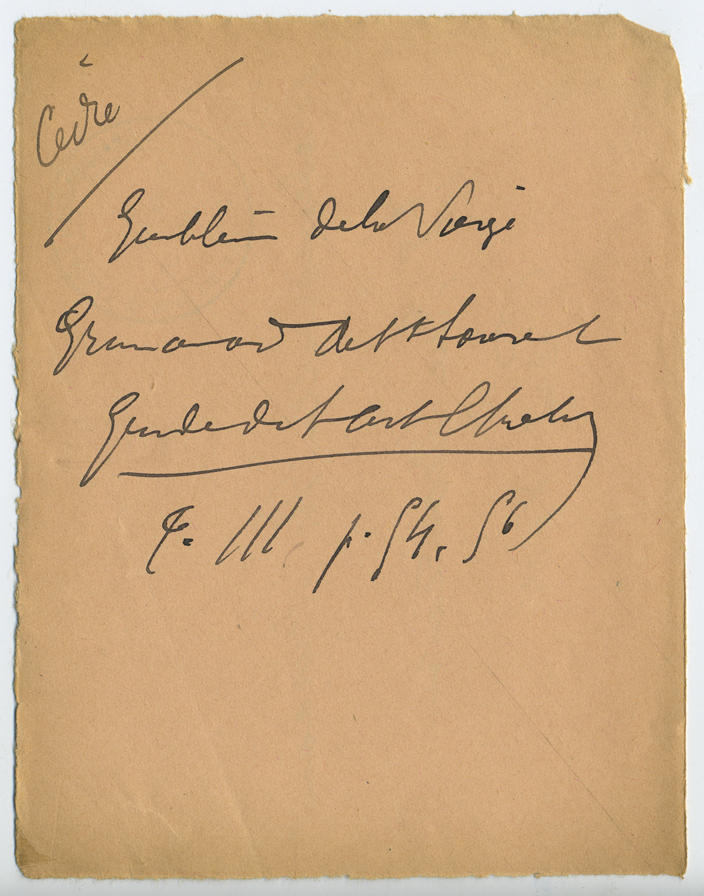 Cèdre
Emblème de la Vierge
Grimouard de St Laurent
Guide de l'art Chrétien
T. III. p. 54. 56